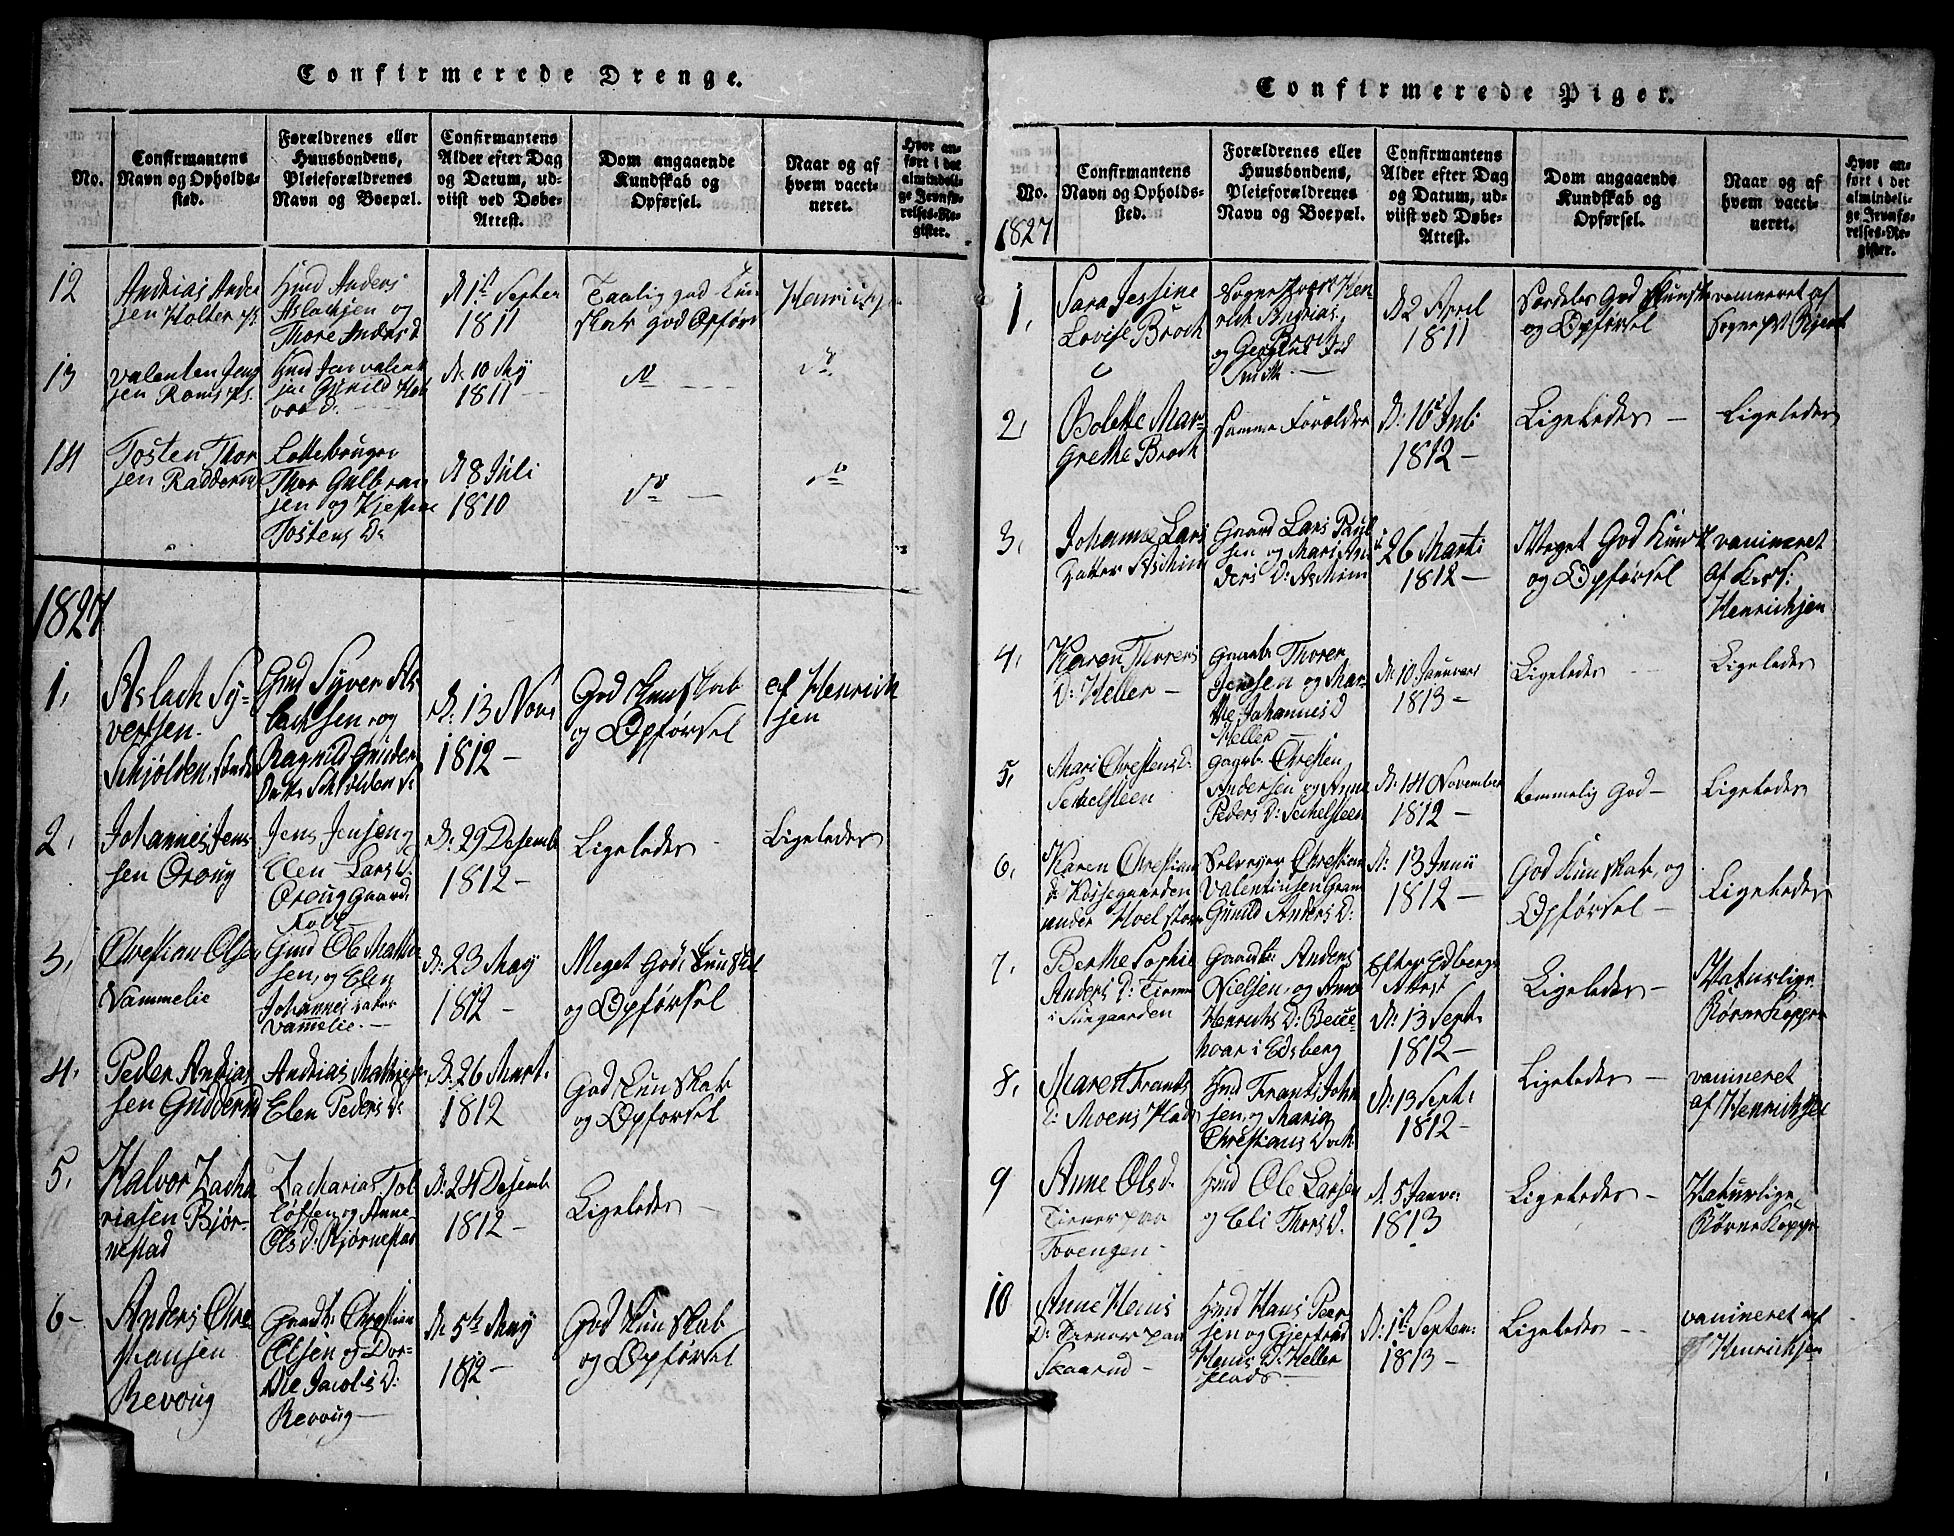 Confirmerede Drenge.
No.
Confirmantens
Navn og Opholds-
sted.
Forældrenes eller
Huusbondens,
Pleieforældrenes
Navn og Boepæl.
Confirmantens
Alder efter Dag
og Datum, ud-
viist ved Døbe-
Attest.
Dom angaaende
Kundskab og
Opførsel.
Naar og af
hvem vacci-
neret.
Hvor an-
ført i det
almindeli-
ge Jevnfø-
relses-Re-
gister.
12
Andrias Ander
sen Holter
Gmd Anders
Aslachsen og
Thore Anders d
d 1ste Septer
1811
Taalig god Kun
skab god Opførs
Henrichs
13
Valenten Jens
sen Roms
Gmd Jens Valent
sen Gunild Hal
vors D.
d. 10 May
1811
do
do
14
Tosten Thor
sen Radderud
Thor Gulbran
sen og Kjersten
Tostens D.
d 8 Juli
1810
do
do
1827
1,
Aslach Sy-
versen
Schjolden Søndre
Gmd Syver As
lachsen, og
Ragnild Gunders
Datter Schjolden S.
D. 13 Nov:
1812 —
God Kunskab
og Opførsel
af Henrich
sen
2,
Johannes Jens
sen Oroug
Jens Jensen og
Elen Lars D.
Oroug Gaard
D. 29 Desemb
1812 —
Ligeledes
Ligeledes
3,
Chrestian Olsen
Vammelie
Gmd Ole Mathi
sen, og Elen
Johannes dater
Vammelie. —
D. 23 May
1812 —
Meget God Kunskab
og Opførsel
4,
Peder Andrias
sen Gudderud
Andrias Mathies
Elen Peders D.
D. 26 Mart.
1812
God Kunskab
og Opførsel
5,
Halvor Zacha
riasen Bjør-
nestad
Zacharias Tol
løfsen, og Anne
Ols D. Bjørnestad
D. 24 Desemb
1812 —
Ligeledes
6 —
Anders Chre
stiansen
Revoug
Gaardb. Chrestian
Olsen og Dor-
the Jacobs D:
Revoug —
D. 5te May
1812 —
God Kunskab
og Opførsel
Confirmerede Piger.
No.
1827
Confirmantens
Navn og Opholds-
sted.
Forældrenes eller
Huusbondens,
Pleieforældrenes
Navn og Boepæl.
Confirmantens
Alder efter Dag
og Datum, ud-
viist ved Døbe-
Attest.
Dom angaaende
Kundskab og
Opførsel.
Naar og af
hvem vacci-
neret.
Hvor an-
ført i det
almindeli-
ge Jevnfø-
relses-Re-
gister.
1,
Sara Jessine
Lovise Broch
Sogneprest Hen
rich Andrias
Broch
og
Smith. —
D 2 April
1811
Særdeles God Kunsk
og Opførsel
vacineret af
Sognepr
2,
Bolette Mar-
grethe Broch
Samme Forældre
D: 16 Juli
1812 —
Ligeledes —
Ligeledes
3,
Johanne Lars
Datter Askim
Gaard Lars Paul
sen og Mari An
ders D: Askim
26 Marti
1812 —
Meget God Kunsk
og Opførsel
vacineret
af Kirks:
Henrichsen
4,
Karen Thorers
D: Heller —
Gaardb Thorer
Jensen og Mar-
the Johannes D
Heller —
D. 10 Januari
1813 —
Ligeledes
Ligeledes
5,
Mari Chrestens D.
Sekelsteen
Gaardb: Chresten
Andersen og Anne
Peders D: Sekelsteen
D: 14 November
1812 —
temmelig God —
Ligeledes
6,
Karen Chrestians
D: Kossegaarden
under Hoel
Selveyer Chrestian
Valentinsen Gran
Gunild Anders D:
D: 13 Junii
1812 —
God Kunskab, og
Opførsel —
Ligeledes
7,
Berthe Sophie
Anders D: Tiener
i Stungaarden
Gaardb: Anders
Nielsen, og Anne
Henrichs D:
i Edsberg
Efter Edbergs
Attest
D: 13 Sept.
1812 —
Ligeledes —
Naturlige
Børne Kopper
8,
Maret Frants
D: Moens Plads
Hmd Frants John
sen, og Maria
Chrestians D
D: 13 Sept:
1812 —
Ligeledes —
vacineret
af Henrichsen
9
Anne Ols D:
Tiener paa
Tovengen —
Hmd Ole Larsen
og Eli Thors D.
D. 5 Janv:
1813
Ligeledes —
Naturlige
Børne Kopper
10
Anne Hans
D: Tiener paa
Skaarud —
Hmd Hans Peer
sen og Gjertrud
Hans D: Heller
Plads —
D: 1ste Septem:
1813 —
Ligeledes —
vacineret af
Henrichsen